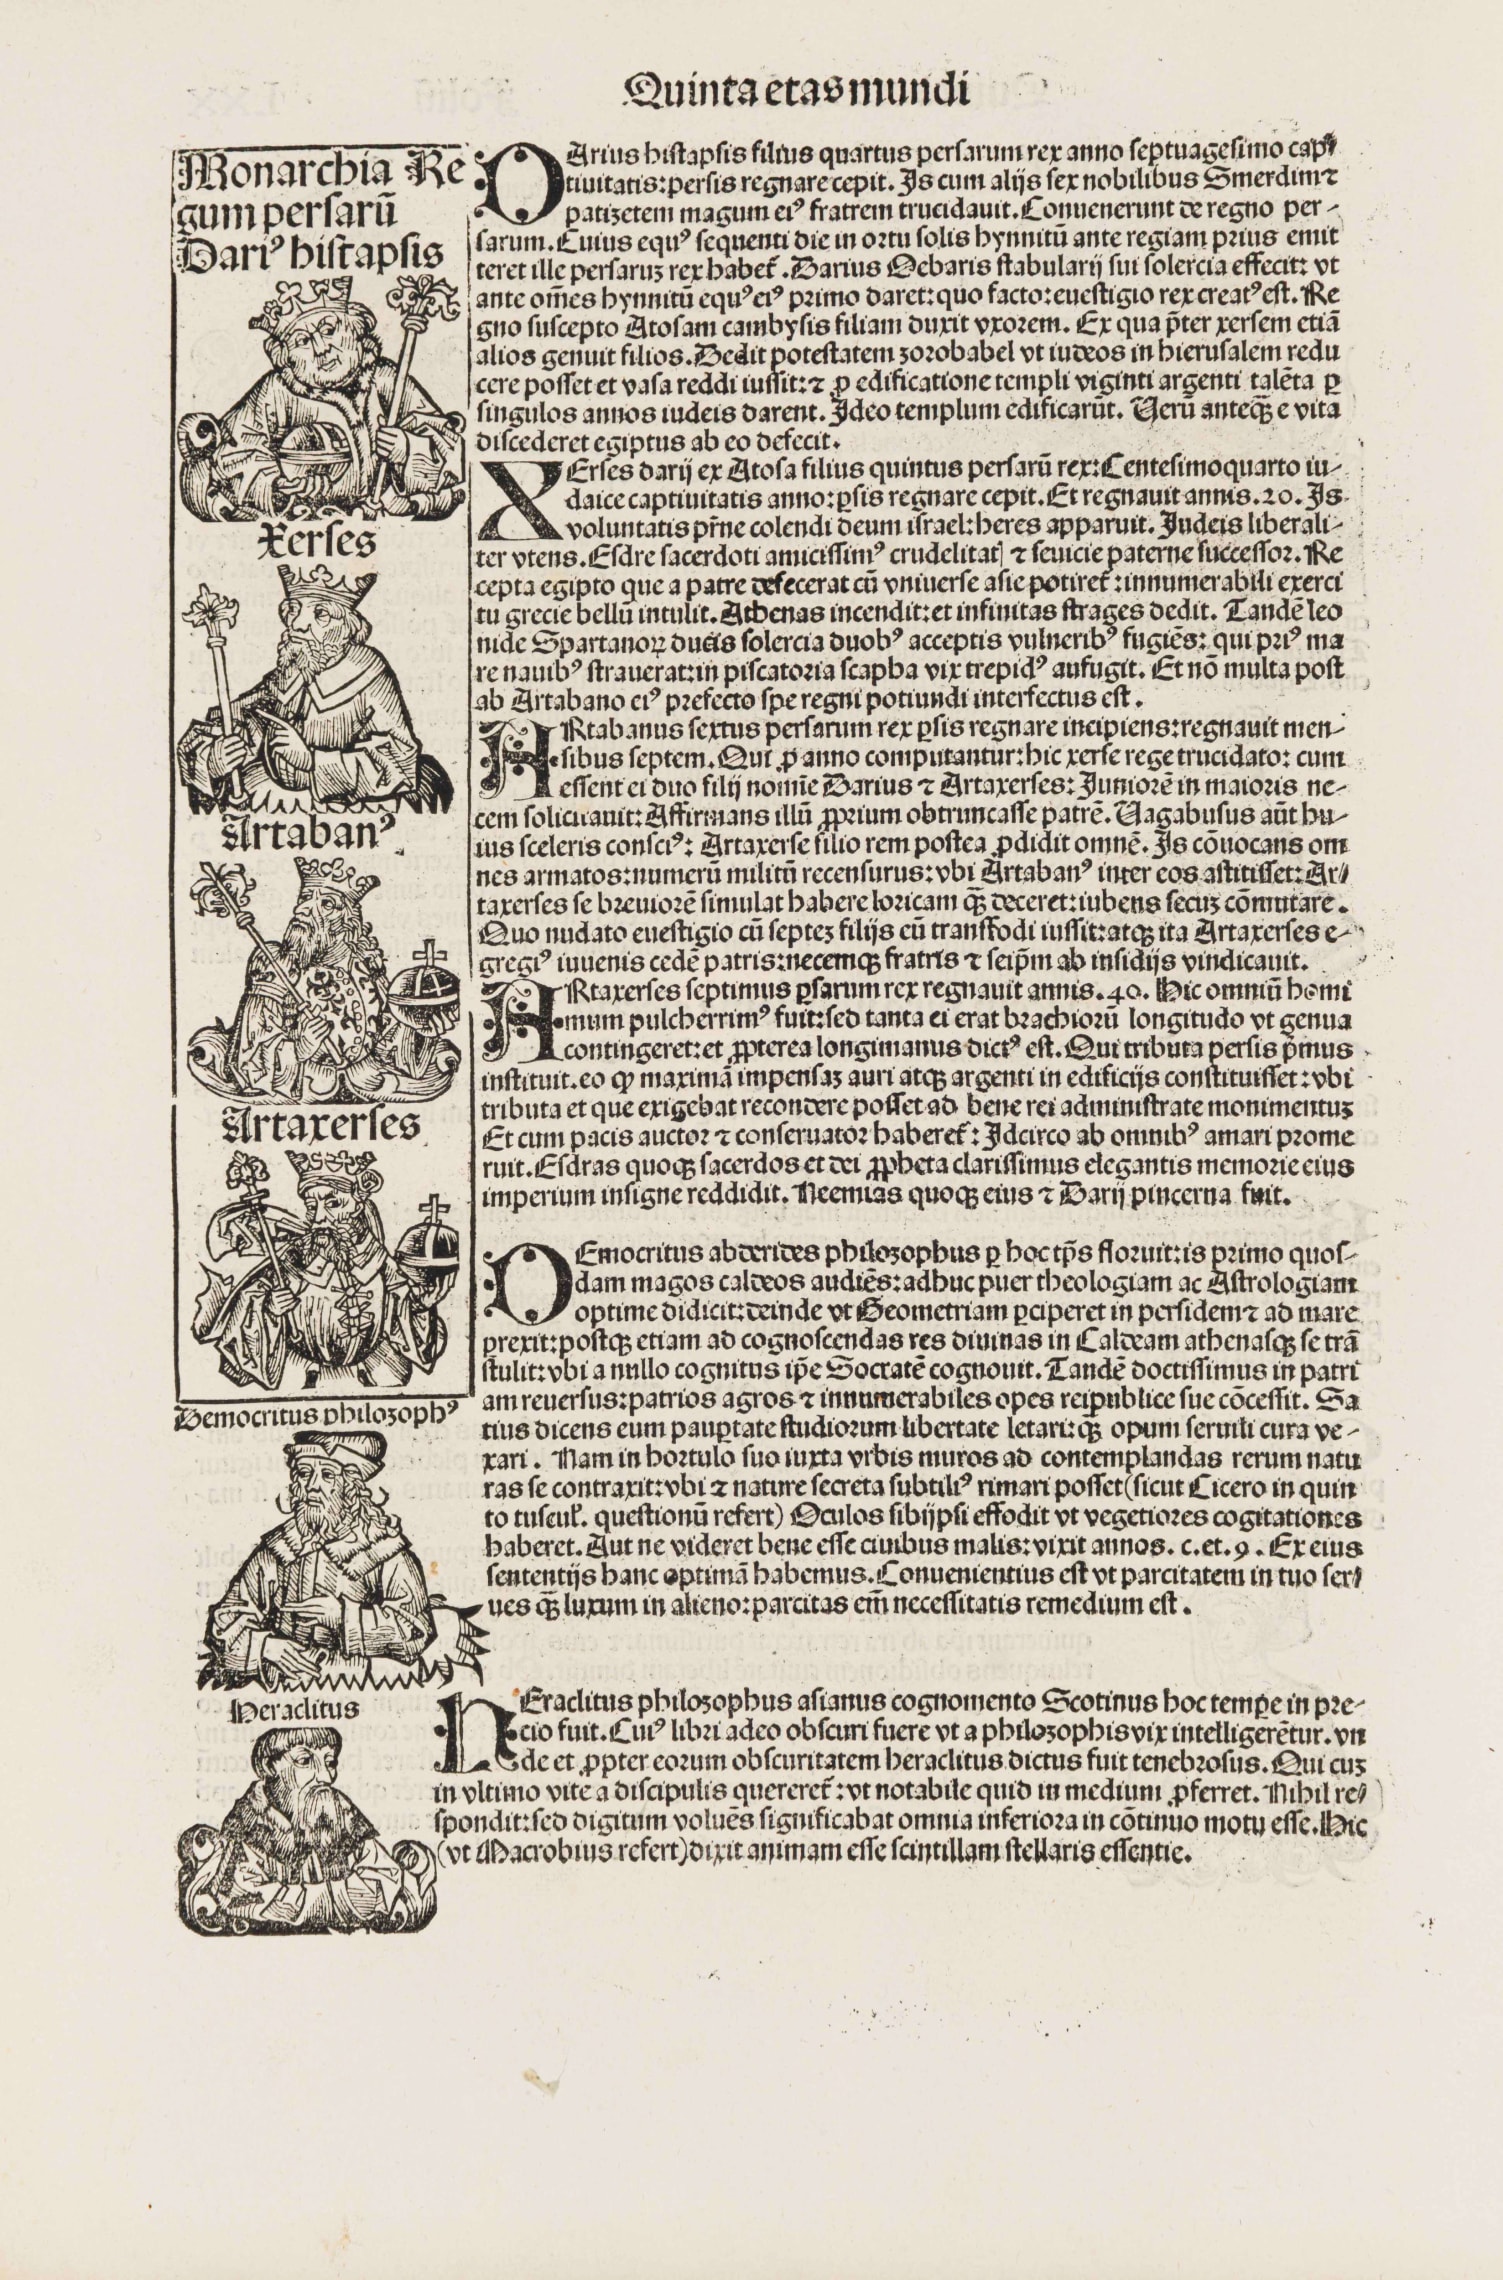 Quinta etas mundi
Monarchia Re
gum persarū
Dariꝰ histapsis
Xerses
Artabanꝰ
Artaxerses
Democritus philozophꝰ
Heraclitus
DArius histapsis filius quartus persarum rex anno septuagesimo cap-
tiuitatis: persis regnare cepit. Is cum alijs sex nobilibus Smerdim ⁊
patizetem magum eiꝰ fratrem trucidauit. Conuenerunt de regno per-
sarum. Cuius equꝰ sequenti die in ortu solis hynnitū ante regiam prius emit
teret ille persaruꝫ rex haberet̄. Darius Oebaris stabularij sui solercia effecit: vt
ante om̄es hynnitū equꝰ eiꝰ primo daret: quo facto: euestigio rex creatꝰ est. Re
gno suscepto Atosam cambysis filiam duxit vxorem. Ex qua p̄ter xersem etiā
alios genuit filios. Dedit potestatem zorobabel vt iudeos in hierusalem redu
cere posset et vasa reddi iussit: ⁊ ꝓ edificatione templi viginti argenti talēta ꝑ
singulos annos iudeis darent. Ideo templum edificarūt. Verū anteqꝫ̄ e vita
discederet egiptus ab eo defecit.
XErses darij ex Atosa filius quintus persarū rex: Centesimoquarto iu-
daice captiuitatis anno: ꝑsis regnare cepit. Et regnauit annis. 20. Is
voluntatis pr̄ne colendi deum israel: heres apparuit. Judeis liberali-
ter vtens. Esdre sacerdoti amicissimꝰ crudelitatꝭ ⁊ seuicie paterne successor. Re
cepta egipto que a patre defecerat cū vniuerse asie potiret̄: innumerabili exerci
tu grecie bellū intulit. Athenas incendit: et infinitas strages dedit. Tandē leo
nide Spartanoꝝ ducis solercia duobꝰ acceptis vulneribꝰ fugiēs: qui priꝰ ma
re nauibꝰ strauerat: in piscatoria scapha vix trepidꝰ aufugit. Et nō multa post
ab Artabano eiꝰ prefecto spe regni potiundi interfectus est.
ARtabanus sextus persarum rex ꝑsis regnare incipiens: regnauit men-
sibus septem. Qui ꝓ anno computantur: hic xerse rege trucidato: cum
essent ei duo filij nomīe Darius ⁊ Artaxerses: Juniorē in maioris ne-
cem solicitauit: Affirmans illū ꝓprium obtruncasse patrē. Vagabusus aūt hu-
ius sceleris consciꝰ: Artaxerse filio rem postea ꝓdidit omnē. Is cōuocans om
nes armatos: numerū militū recensurus: vbi Artabanꝰ inter eos astitisset: Ar-
taxerses se breuiorē simulat habere loricam qꝫ̄ deceret: iubens secuꝫ cōmutare.
Quo nudato euestigio cū septeꝫ filijs eū transfodi iussit: atqꝫ ita Artaxerses e-
gregiꝰ iuuenis cedē patris: necemqꝫ fratris ⁊ seip̄m ab insidijs vindicauit.
ARtaxerses septimus ꝑsarum rex regnauit annis. 40. Hic omniū homi
mum pulcherrimꝰ fuit: sed tanta ei erat brachiorū longitudo vt genua
contingeret: et ꝓpterea longimanus dictꝰ est. Qui tributa persis p̄mus
instituit. eo ꝙ maximā impensaꝫ auri atqꝫ argenti in edificijs constituisset: vbi
tributa et que exigebat recondere posset ad bene rei administrate monimentuꝫ
Et cum pacis auctor ⁊ conseruator haberet̄: Idcirco ab omnibꝰ amari prome
ruit. Esdras quoqꝫ sacerdos et dei ꝓpheta clarissimus elegantis memorie eius
imperium insigne reddidit. Neemias quoqꝫ eius ⁊ Darij pincerna fuit.
DEmocritus abderides philozophus ꝑ hoc tp̄s floruit: is primo quos-
dam magos caldeos audiēs: adhuc puer theologiam ac Astrologiam
optime didicit: deinde vt Geometriam ꝑciperet in persidem ⁊ ad mare
ꝑrexit: postqꝫ etiam ad cognoscendas res diuinas in Caldeam athenasqꝫ se trā
stulit: vbi a nullo cognitus ip̄e Socratē cognouit. Tandē doctissimus in patri
am reuersus: patrios agros ⁊ innumerabiles opes reipublice sue cōcessit. Sa
tius dicens eum pauꝑtate studiorum libertate letari: qꝫ̄ opum seruili cura ve-
xari. Nam in hortulo suo iuxta vrbis muros ad contemplandas rerum natu
ras se contraxit: vbi ⁊ nature secreta subtiliꝰ rimari posset (sicut Cicero in quin
to tuscul̄. questionū refert) Oculos sibijpsi effodit vt vegetiores cogitationes
haberet. Aut ne videret bene esse ciuibus malis: vixit annos. c. et. 9. Ex eius
sententijs hanc optimā habemus. Conuenientius est vt parcitatem in tuo ser-
ues qꝫ̄ luxum in alieno: parcitas em̄ necessitatis remedium est.
HEraclitus philozophus asianus cognomento Scotinus hoc tempe in pre-
cio fuit. Cuiꝰ libri adeo obscuri fuere vt a philozophis vix intelligerētur. vn
de et ꝓpter eorum obscuritatem heraclitus dictus fuit tenebrosus. Qui cuꝫ
in vltimo vite a discipulis quereret̄: vt notabile quid in medium ꝓferret. Nihil re-
spondit: sed digitum voluēs significabat omnia inferiora in cōtinuo motu esse. Hic
(vt Macrobius refert) dixit animam esse scintillam stellaris essentie.